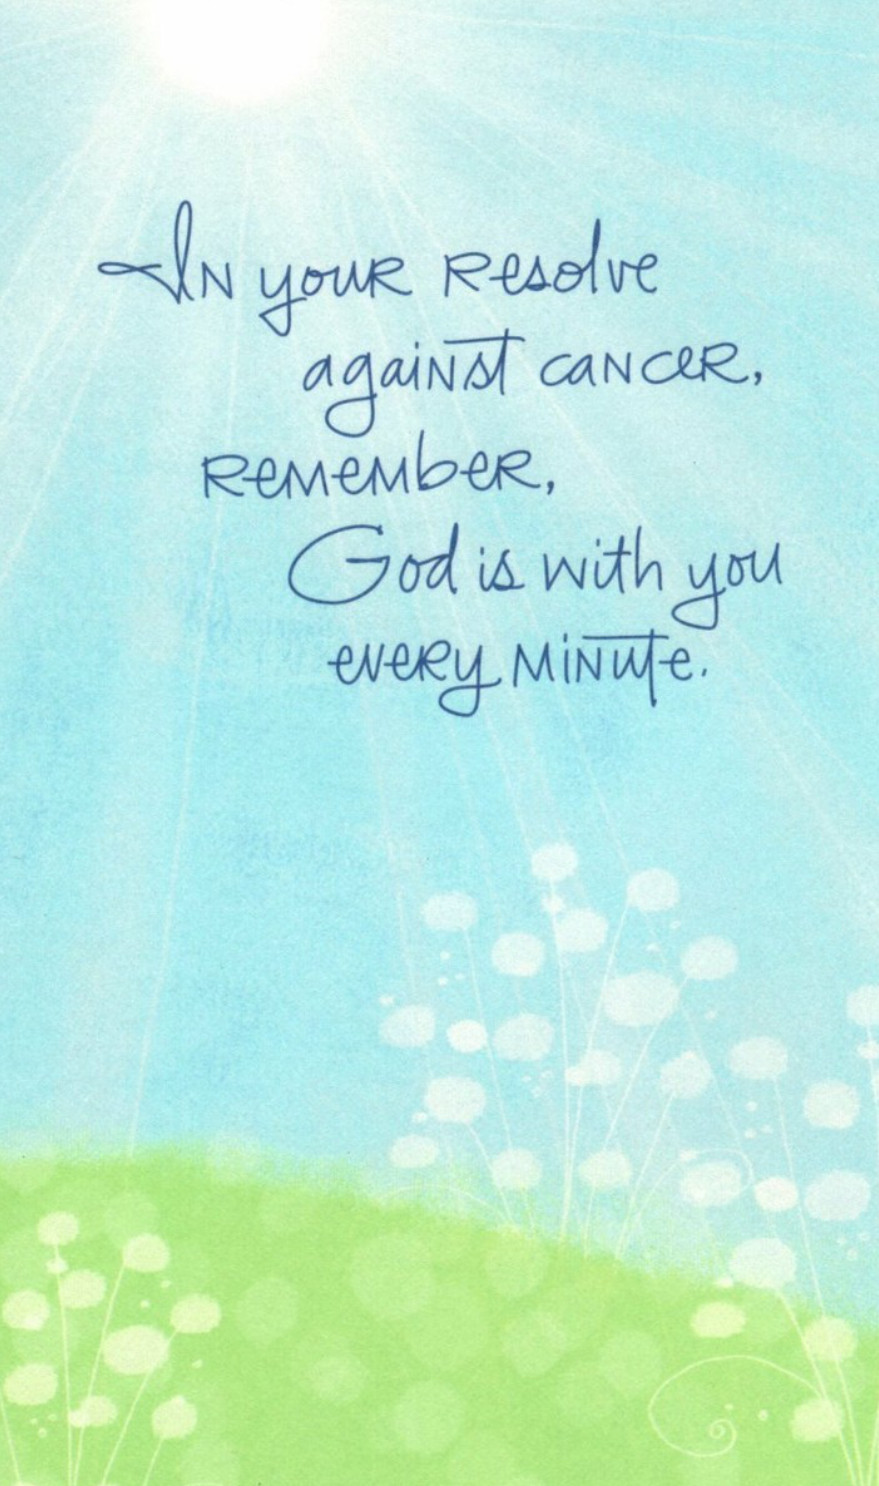 In your resolve
against cancer,
remember,
God is with you
every minute.